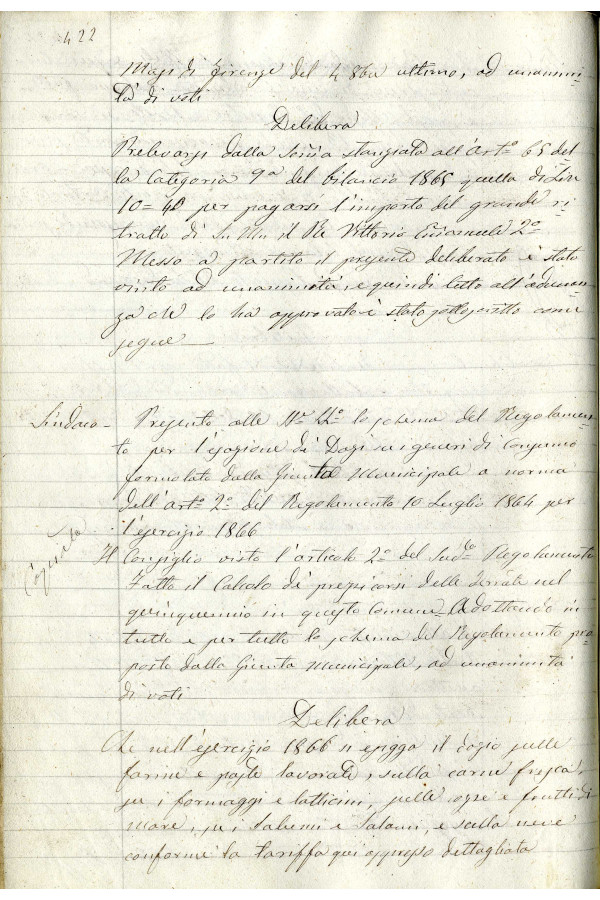 422
Magi di Firenze del 4 8bre ultimo, ad unanimi-
tà di voti
Delibera
Prelevarsi dalla Somma stanziata all'Arto 65 del
la Categoria 9a del bilancio 1865 quella di Lire
10=40 per pagarsi l'importo del grande ri-
tratto di S. M. il Re Vittorio Emanuele 2o
Messo a partito il presente deliberato è stato
vinto ad unanimità, e quindi letto all'adunan-
za che lo ha approvato è stato sottoscritto come
segue
Sindaco - Presento alle
lo schema del Regolamen-
to per l'esazione di Dazi su i generi di Consumo
formolato dalla Giunta Municipale a norma
dell'Arto 2o del Regolamento 10 Luglio 1864 per
l'esercizio 1866
Il Consiglio visto l'articolo 2o del sudo Regolamento
Fatto il Calcolo di prezzi corsi delle derrate nel
quinquennio in questo Comune Adottando in
tutto e per tutto lo schema del Regolamento pro-
posto dalla Giunta Municipale, ad unanimità
di voti
Delibera
Che nell'esercizio 1866 si esigga il dazio sulle
farine e paste lavorate, sulla carne fresca,
su i formaggi e latticini, sulle ozze e frutti di
mare, su i Salumi e Salami, e sulla neve
conforme la tariffa qui appresso dettagliata